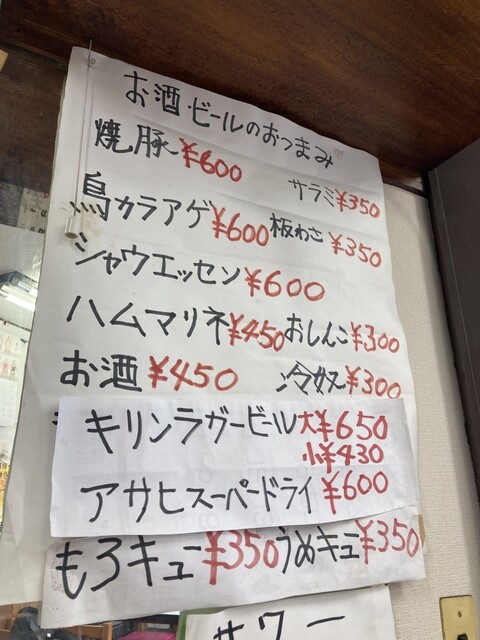 お酒・ビールのおつまみ
焼豚¥600
サラミ¥350
鳥カラアゲ¥600
板わさ¥350
シャウエッセン¥600
ハムマリネ¥450
おしんこ¥300
お酒¥450
冷奴¥300
キリンラガービール大¥650
小¥430
アサヒスーパードライ¥600
もろキュー¥350
うめキュー¥350